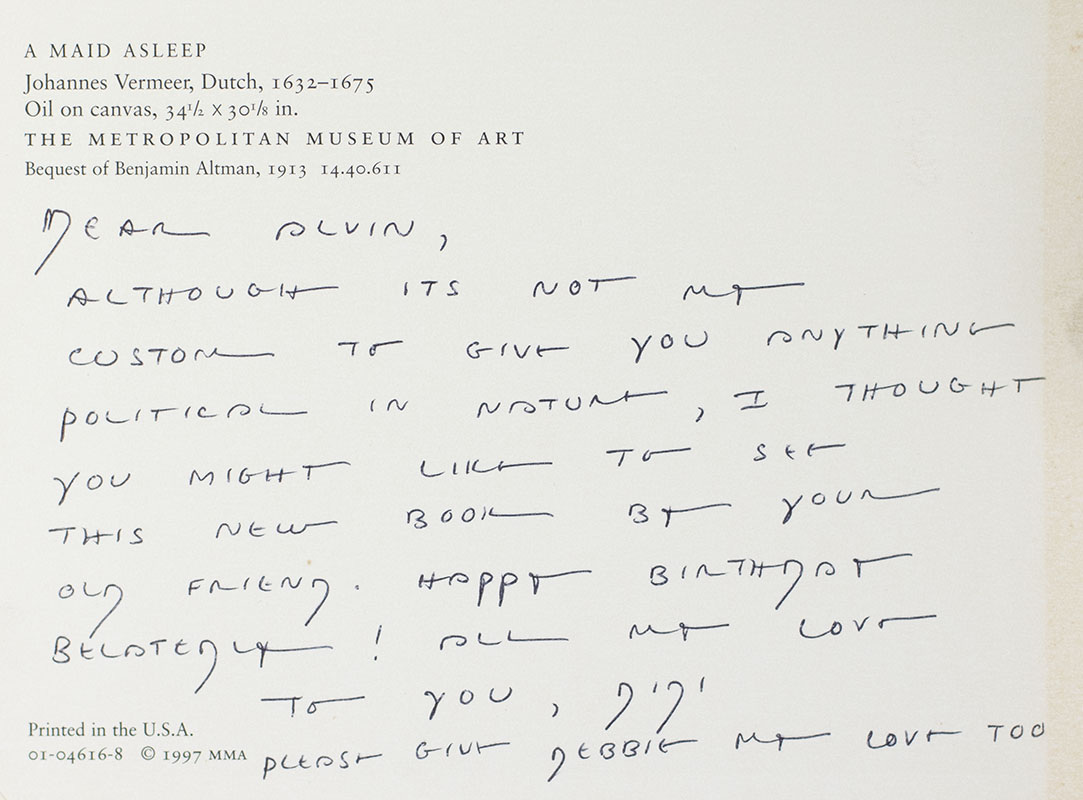 A MAID ASLEEP
Johannes Vermeer, Dutch, 1632–1675
Oil on canvas, 34 1/2 X 30 1/8 in.
THE METROPOLITAN MUSEUM OF ART
Bequest of Benjamin Altman, 1913 14.40.611
DEAR ALVIN,
ALTHOUGH ITS NOT MY
CUSTOM TO GIVE YOU ANYTHING
POLITICAL IN NATURE, I THOUGHT
YOU MIGHT LIKE TO SEE
THIS NEW BOOK BY YOUR
OLD FRIEND. HAPPY BIRTHDAY
BELATEDLY! ALL MY LOVE
TO YOU, D'D'
PLEASE GIVE DEBBIE MY LOVE TOO
Printed in the U.S.A.
01-04616-8 © 1997 MMA